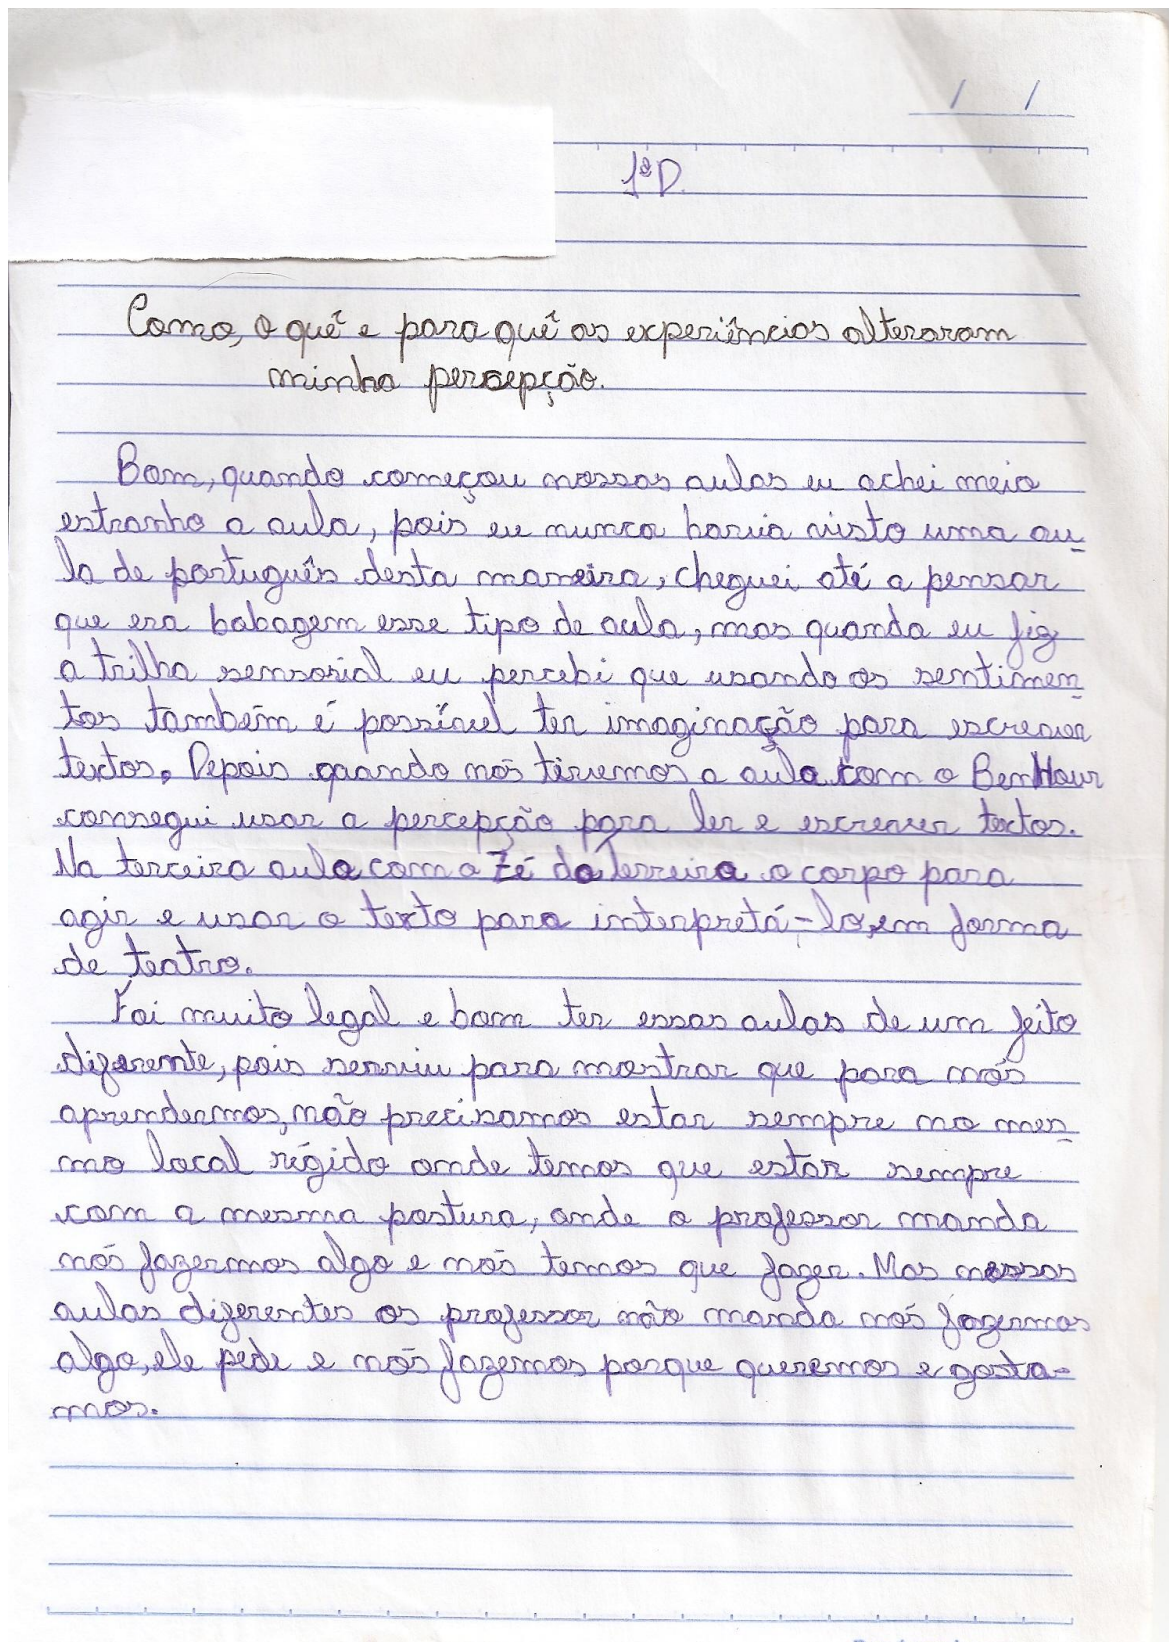 / /
1ºD.
Como, o quê e para quê as experiências alteraram
minha percepção.
Bom, quando começou nossas aulas eu achei meio
estranho a aula, pois eu nunca havia visto uma au-
la de português desta maneira, cheguei até a pensar
que era bobagem esse tipo de aula, mas quando eu fiz
a trilha sensorial eu percebi que usando os sentimen-
tos também é possível ter imaginação para escrever
textos. Depois quando nós tivemos a aula com o BenHour
consegui usar a percepção para ler e escrever textos.
Na terceira aula com o Zé da Terreira o corpo para
agir e usar o texto para interpretá-lo, em forma
de teatro.
Foi muito legal e bom ter essas aulas de um jeito
diferente, pois serviu para mostrar que para nós
aprendermos, não precisamos estar sempre no mes-
mo local régido onde temos que estar sempre
com a mesma postura, onde o professor manda
nós fazermos algo e nós temos que fazer. Mas nessas
aulas diferentes os professor não manda nós fazermos
algo, ele pede e nós fazemos porque queremos e gosta-
mos.